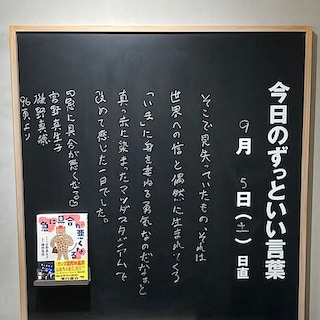 今日のずっといい言葉
9月5日(土)日直
そこで見失っていたもの、それは
世界への信と偶然に生まれてくる
「いま」に身を委ねる勇気なのだな、と
真っ赤に染まったマツダスタジアムで
改めて感じた一日でした。
『急に具合が悪くなる』
宮野真生子
磯野真穂
96頁より
急に具合が悪くなる